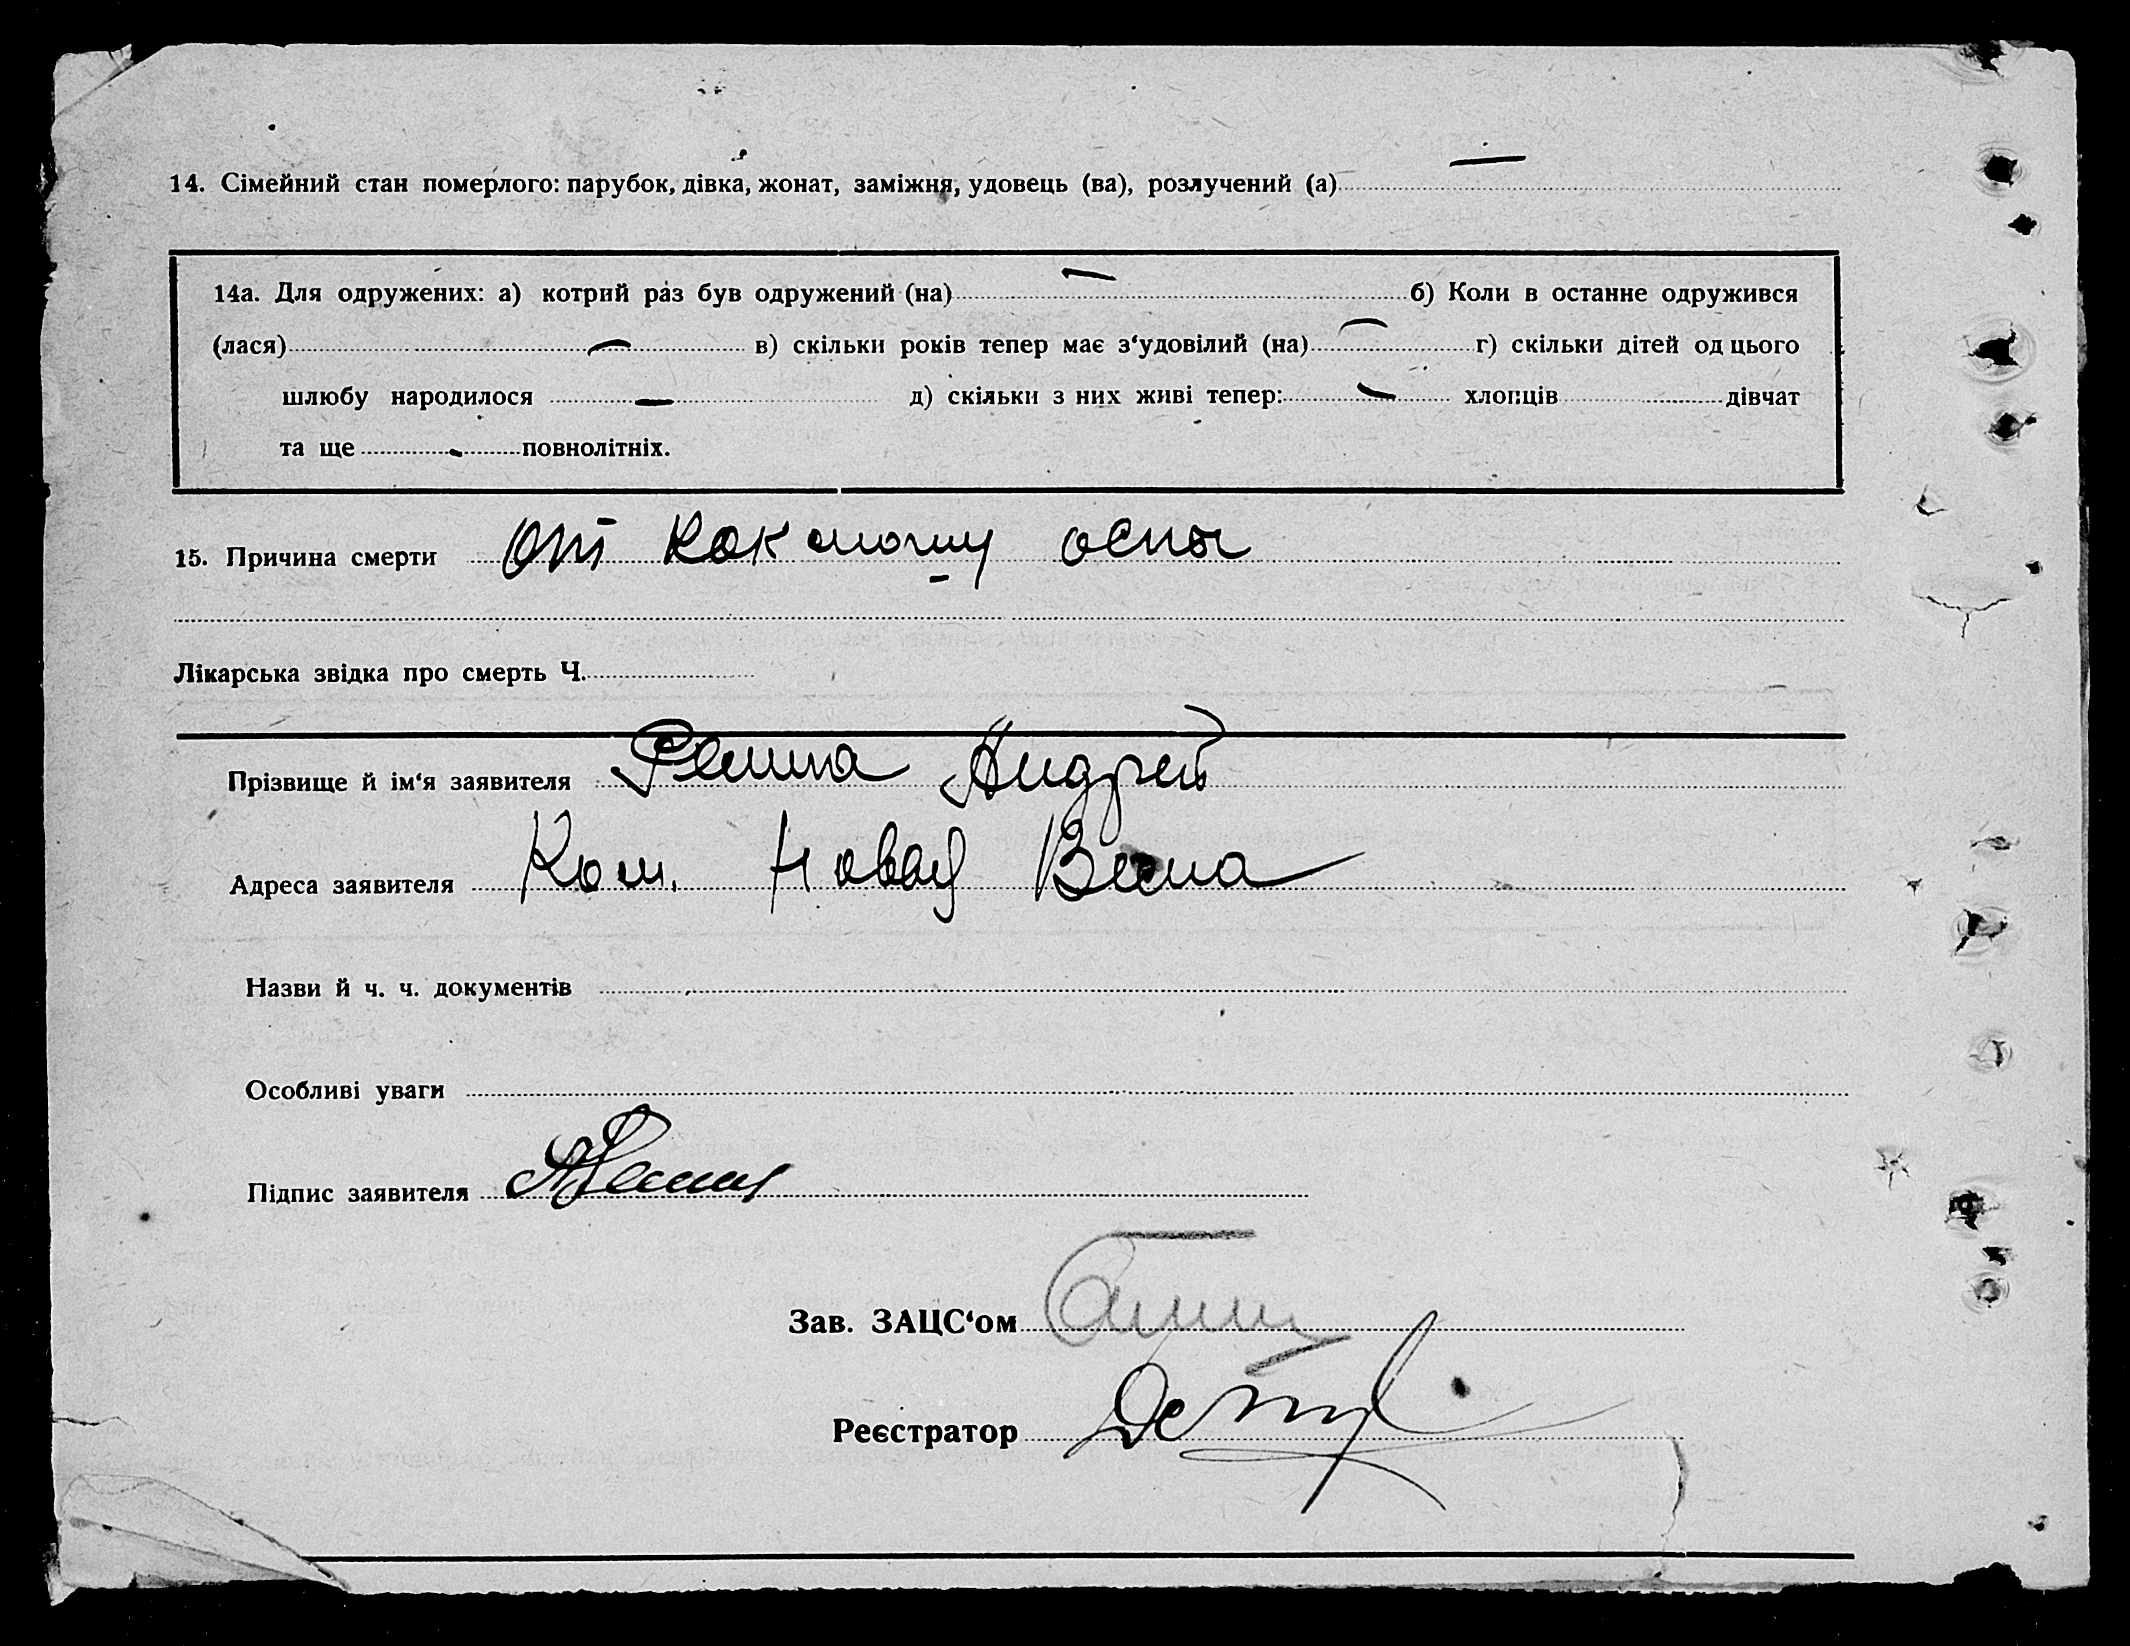 14. Сімейний стан померлого: парубок, дівка, жонат, заміжня, удовець (ва), розлучений (а) —
14а. Для одружених: а) котрий раз був одружений (на) — б) Коли в останне одружився
(лася) — в) скільки років тепер має з‘удовілий (на) — г) скільки дітей од цього
шлюбу народилося — д) скільки з них живі тепер: — хлопців дівчат
та ще - повнолітніх.
15. Причина смерти От оспы
Лікарська звідка про смерть Ч.
Прізвище й ім‘я заявителя Андрей
Адреса заявителя Ком. Новая Весна
Назви й ч. ч. документів
Особливі уваги
Підпис заявителя
Зав. ЗАЦС‘ом
Реєстратор